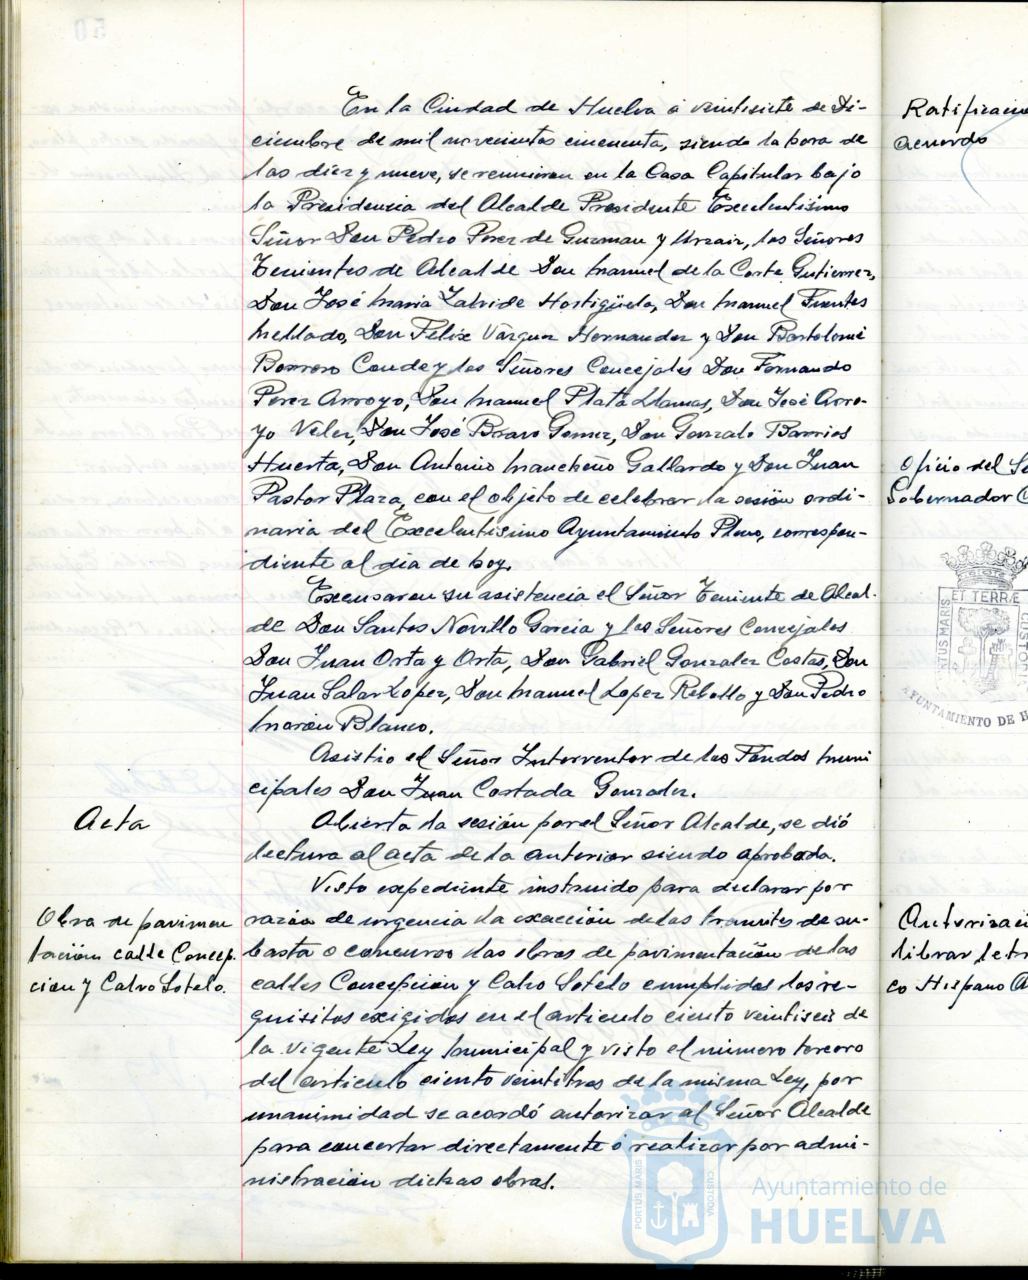 En la Ciudad de Huelva a veintisiete de Di-
ciembre de mil novecientos cincuenta, siendo la hora de
las diez y nueve, se reunieron en la Casa Capitular bajo
la Presidencia del Alcalde Presidente Excelentisimo
Señor Don Pedro Perez de Guzman y Urzaiz, los Señores
Tenientes de Alcalde Don Manuel de la Corte Gutierrez,
Don José Maria Zalvide Hostigüela, Don Manuel Fuentes
Mellado, Don Felix Vázquez Hernandez y Don Bartolomé
Borrero Conde y los Señores Concejales Don Fernando
Perez Arroyo, Don Manuel Plata Llamas, Don José Arro-
yo Velez, Don José Bravo Gomez, Don Gonzalo Barrios
Huerta, Don Antonio Mancheño Gallardo y Don Juan
Pastor Plaza, con el objeto de celebrar la sesión ordi-
naria del Excelentisimo Ayuntamiento Pleno, correspon-
diente al dia de hoy.
Excusaron su asistencia el Señor Teniente de Alcal-
de Don Santos Novillo Garcia y los Señores Concejales
Don Juan Orta y Orta, Don Gabriel Gonzalez Costas, Don
Juan Salar Lopez, Don Manuel Lopez Rebollo y Don Pedro
Blanco.
Asistio el Señor Interventor de los Fondos Muni
cipales Don Juan Costada Gonzalez.
Acta
Abierta la sesión por el Señor Alcalde, se dió
lectura al acta de la anterior siendo aprobada.
Obra de pavimen
tación calle Concep.
cion y Calvo Sotelo.
Visto expediente instruido para declarar por
razón de urgencia la exacción de los tramites de su-
basta o concurso las obras de pavimentación de las
calles Concepcion y Calvo Sotelo cumplidos los re-
quisitos exigidos en el articulo ciento veintiseis de
la vigente Ley Municipal y visto el número tercero
del articulo ciento veintitres de la misma Ley, por
unanimidad se acordó autorizar al Señor Alcalde
para concertar directamente ó realizar por admi-
nistración dichas obras.
Ratificacio
acuerdo
Oficio del Se
Gobernador C
ET TERRÆ
PORTUS MARIS
CUSTODIA
AYUNTAMIENTO DE H
Autorizaci
librar letr
co Hispano A
PORTUS MARIS
CUSTODIA
Ayuntamiento de
HUELVA